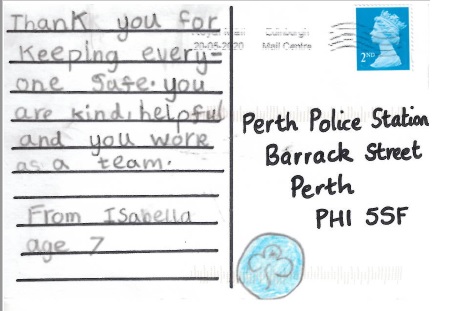 Thank you for
Keeping every-
one Safe. you
are kind, helpful
and you work
as a team.
From ISabella
age 7
Royal Mail Edinburgh
20-05-2020 Mail Centre
2ND
Perth Police Station
Barrack Street
Perth
PH1 5SF